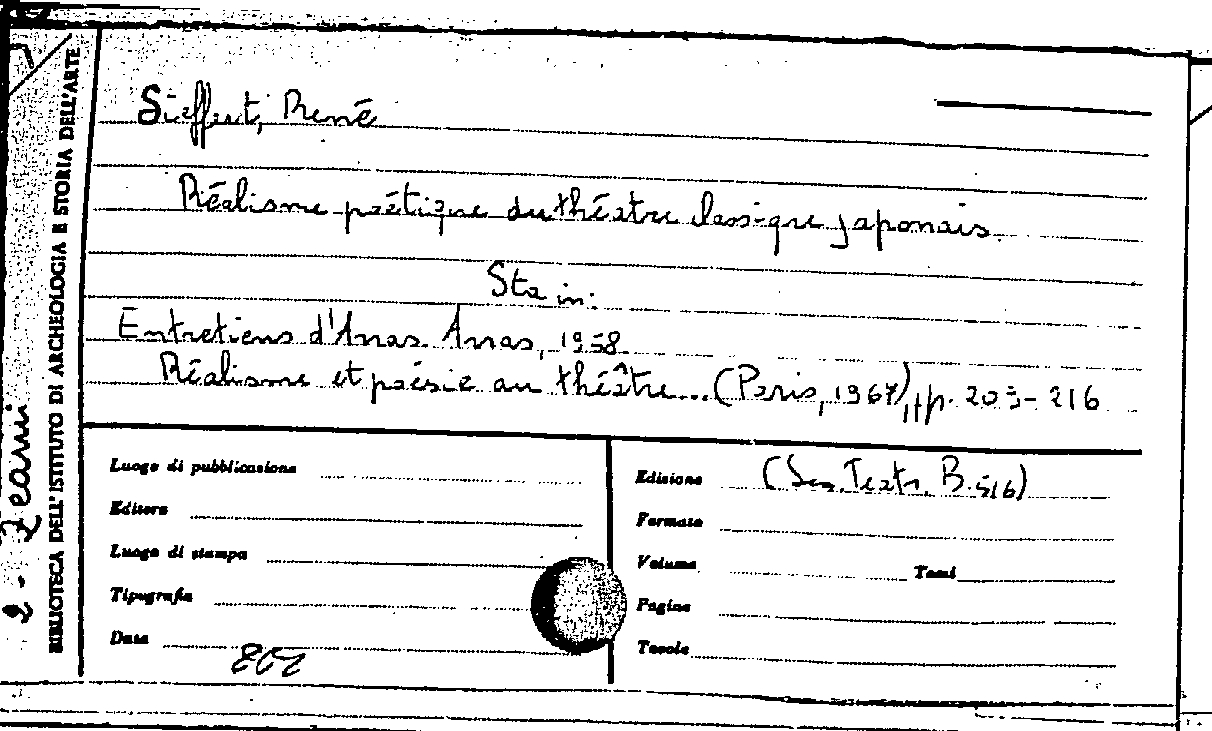 Sieffert, René
Réalisme poétique du théâtre classique japonais.
Sta in:
Entretiens d'Arras. Arras, 1958
Réalisme et poésie au théâtre... (Paris, 1967), pp. 203-216
BIBLIOTECA DELL'ISTITUTO DI ARCHEOLOGIA E STORIA DELL'ARTE
Luogo di pubblicazione
Editore
Luogo di stampa
Tipografia
Data
Edizione (Sez. Teatr. B. 516)
Formato
Volume Tomi
Pagine
Tavole